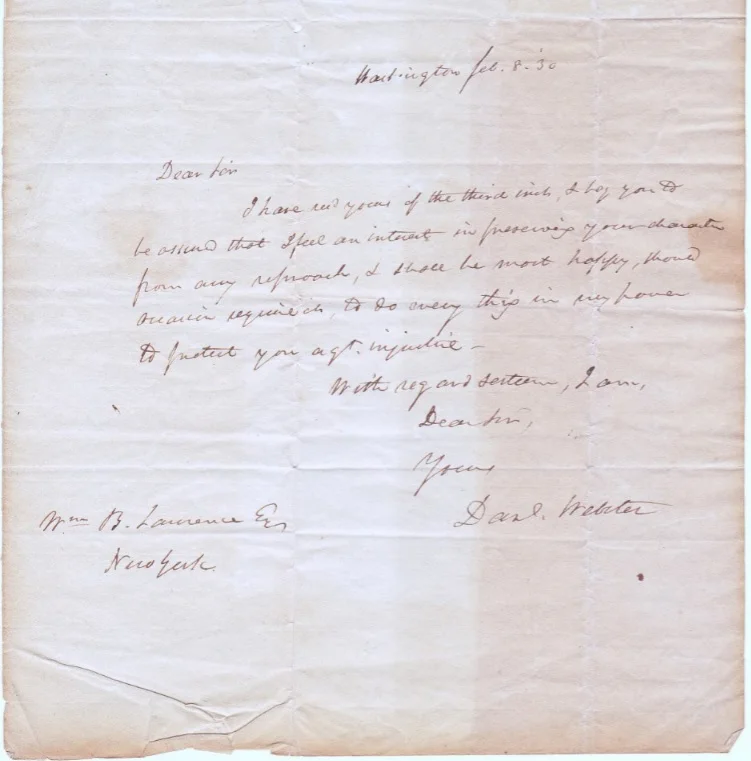 Washington Feb. 8. '30
Dear Sir
I have recd yours of the third inst, & beg you to
be assured that I feel an interest in preserving your character
from any reproach, & shall be most happy, should
occasion require it, to do every thing in my power
to protect you agt. injustice -
With regard & esteem, I am,
Dear Sir,
Yours
Danl. Webster
Wm B. Lawrence Esq
New York